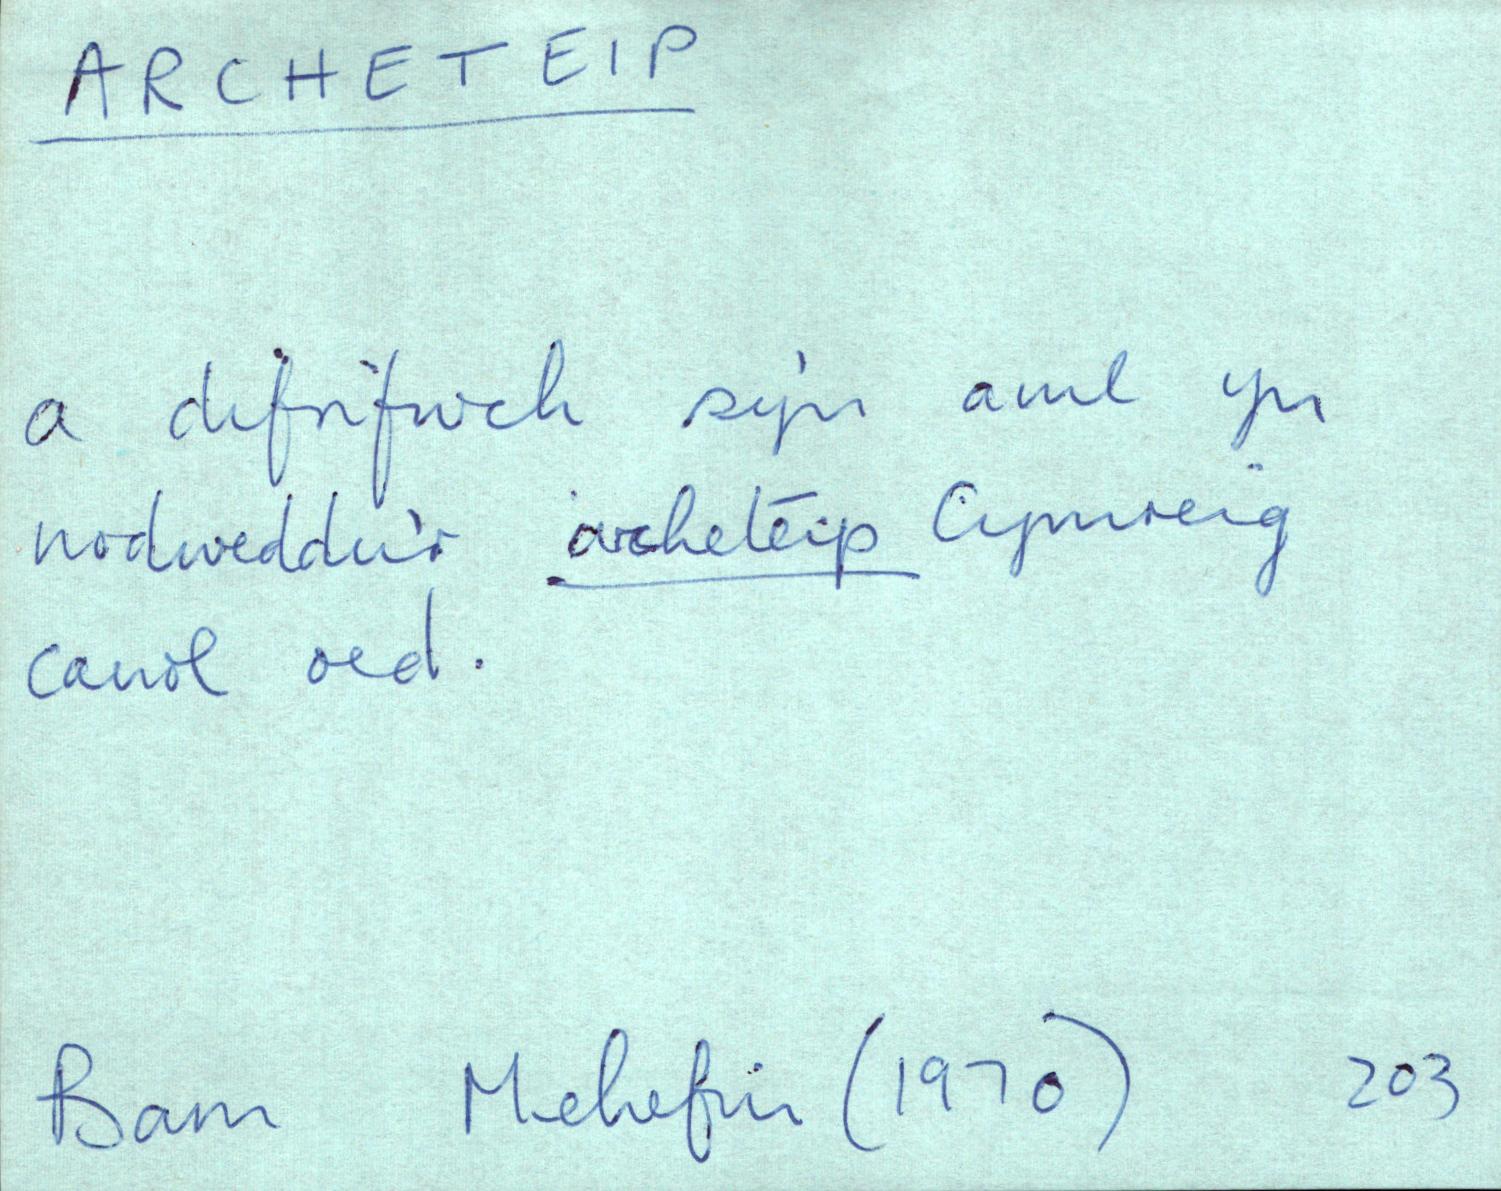 ARCHETEIP
a difrifwch sy'n aml yn
nodweddu'r archeteip Cymreig
canol oed.
Barn Mehefin (1970) 203